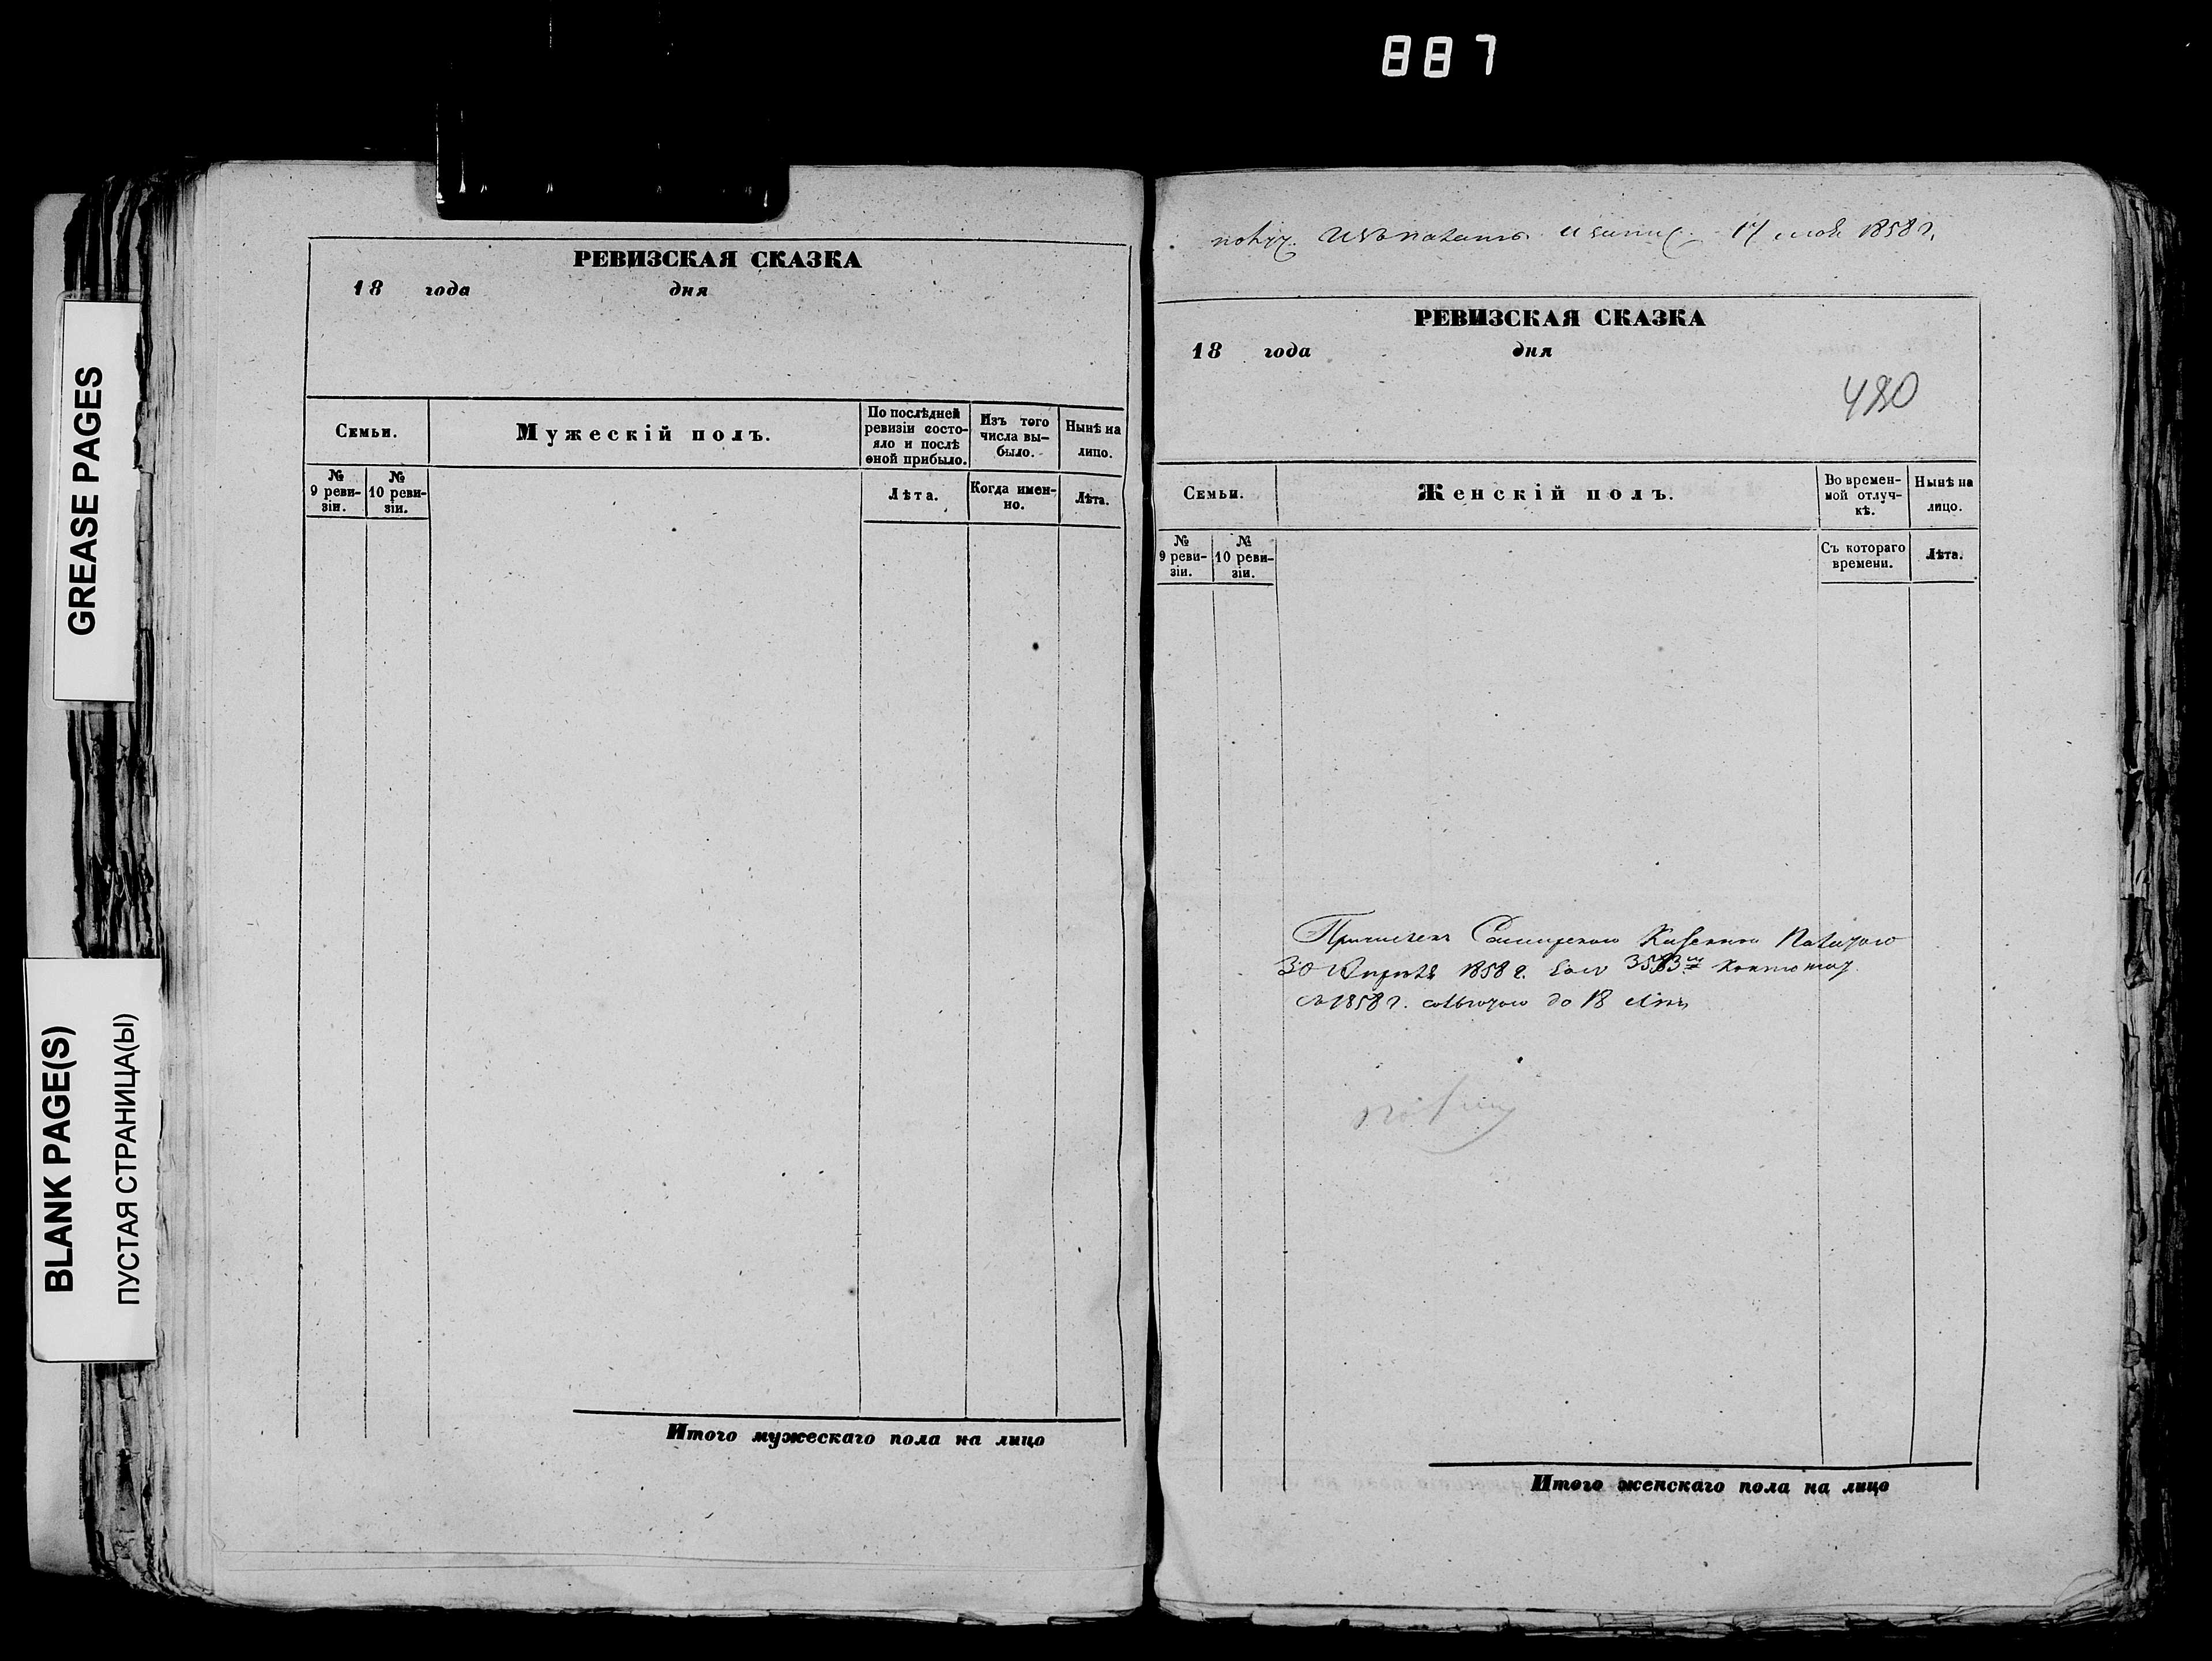 887
GREASE PAGES
BLANK PAGE(S)
ПУСТАЯ СТРАНИЦА(Ы)
РЕВИЗСКАЯ СКАЗКА
18 года дня
Семьи.
Мужескій полъ.
По послѣдней
ревизіи состо-
яло и послѣ
оной прибыло.
Изъ того
числа вы-
было.
Нынѣ на
лицо.
№
9 реви-
зіи.
№
10 реви-
зіи.
Лѣта.
Когда имен-
но.
Лѣта.
Итого мужескаго пола на лицо
получ. 17 1858 г.
РЕВИЗСКАЯ СКАЗКА
18 года дня
480
Семьи.
Женскій полъ.
Во времен-
мой отлуч-
кѣ.
Нынѣ на
лицо.
№
9 реви-
зіи.
№
10 реви-
зіи.
Съ котораго
времени.
Лѣта.
Причислен Казенною Палатою
30 Апрѣля 1858 г.
съ 1858 г. до 18 лѣтъ
Итого женскаго пола на лицо